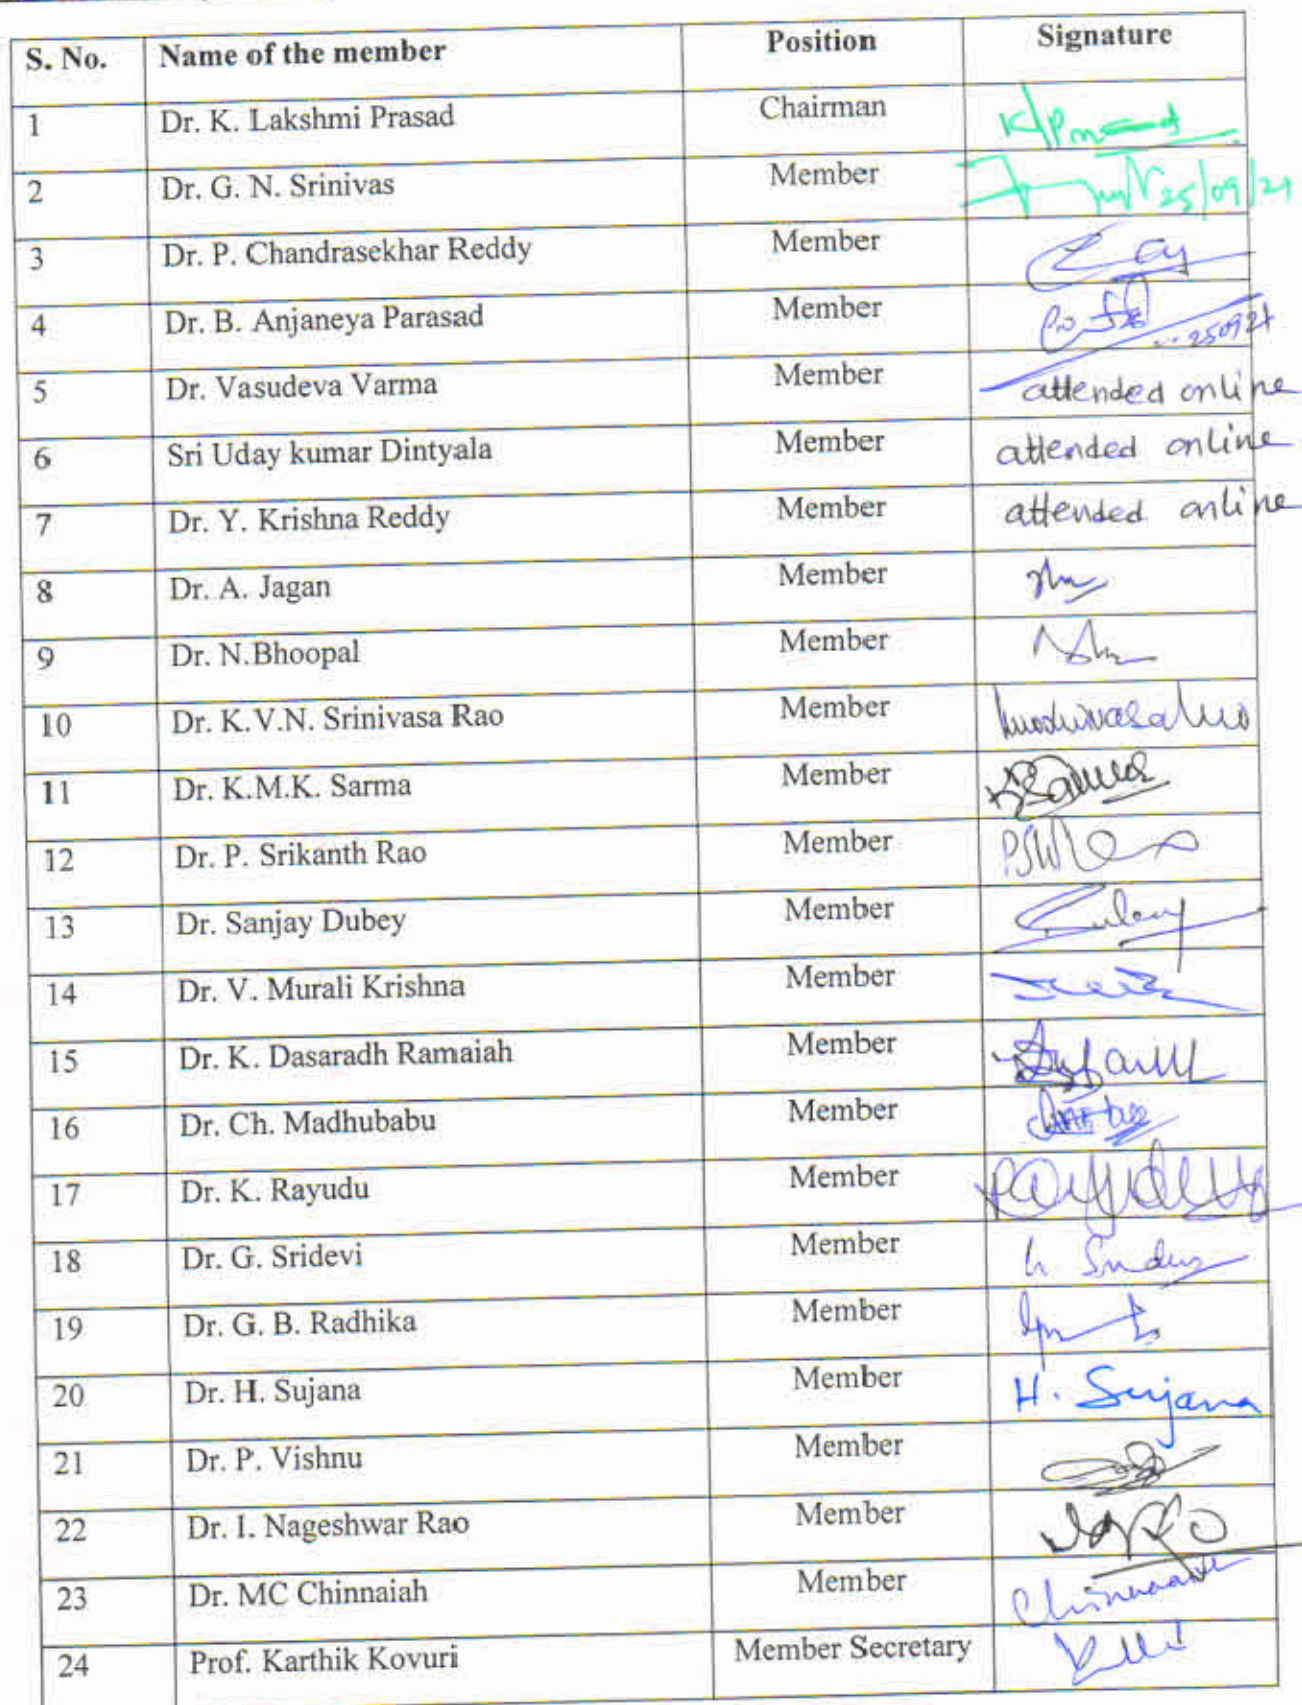 S. No. Name of the member Position Signature
1 Dr. K. Lakshmi Prasad Chairman
2 Dr. G. N. Srinivas Member 25/09/21
3 Dr. P. Chandrasekhar Reddy Member
4 Dr. B. Anjaneya Parasad Member 250921
5 Dr. Vasudeva Varma Member attended online
6 Sri Uday kumar Dintyala Member attended online
7 Dr. Y. Krishna Reddy Member attended online
8 Dr. A. Jagan Member
9 Dr. N.Bhoopal Member
10 Dr. K.V.N. Srinivasa Rao Member
11 Dr. K.M.K. Sarma Member
12 Dr. P. Srikanth Rao Member
13 Dr. Sanjay Dubey Member
14 Dr. V. Murali Krishna Member
15 Dr. K. Dasaradh Ramaiah Member
16 Dr. Ch. Madhubabu Member
17 Dr. K. Rayudu Member
18 Dr. G. Sridevi Member
19 Dr. G. B. Radhika Member
20 Dr. H. Sujana Member H. Sujana
21 Dr. P. Vishnu Member
22 Dr. I. Nageshwar Rao Member
23 Dr. MC Chinnaiah Member
24 Prof. Karthik Kovuri Member Secretary